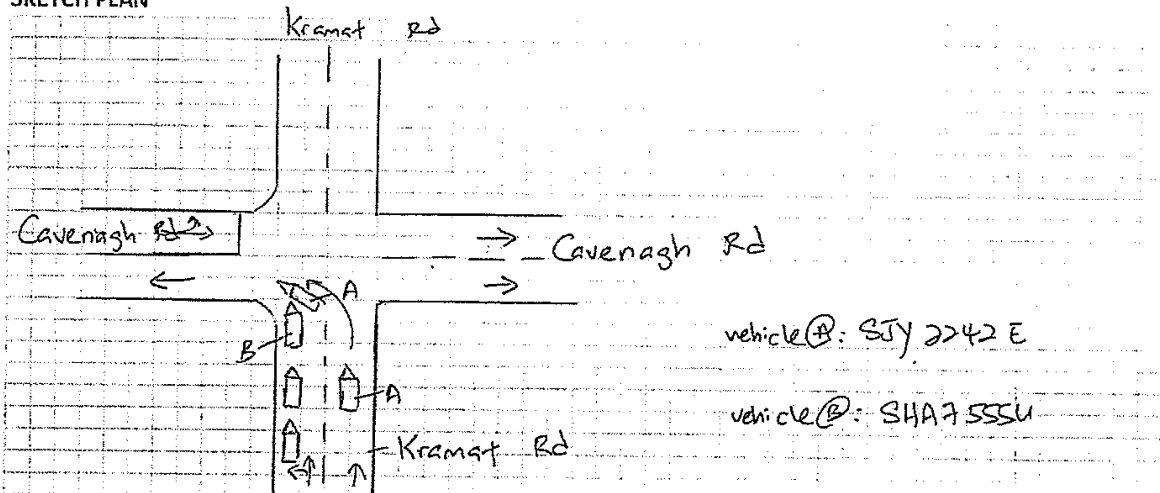 SKETCH PLAN
Kramat Rd
Cavenagh Rd
Cavenagh Rd
A
B
A
Kramat Rd
vehicle Ⓐ: SJY 2242 E
vehicle Ⓑ: SHA7555U